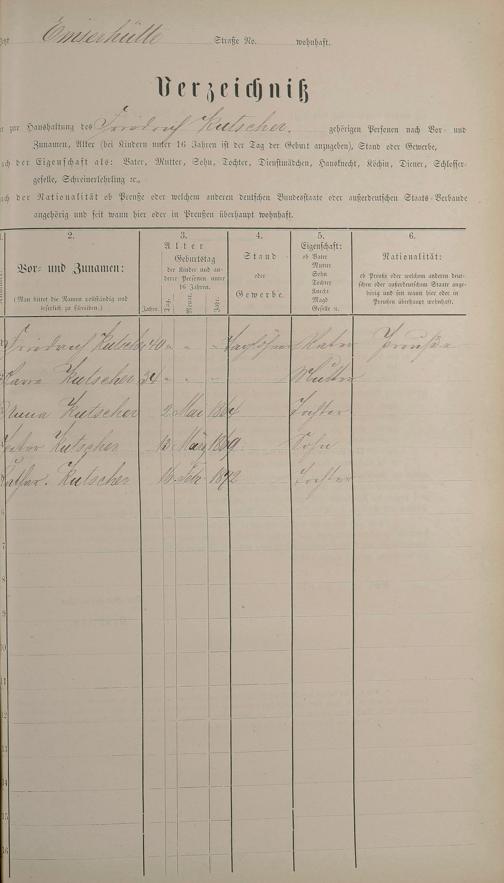 Emserhütte Straße No. wohnhaft.
Verzeichniß
zur Haushaltung des Friedrich Kutscher. gehörigen Personen nach Vor- und
Zunamen, Alter (bei Kindern unter 16 Jahren ist der Tag der Geburt anzugeben), Stand oder Gewerbe,
der Eigenschaft als: Vater, Mutter, Sohn, Tochter, Dienstmädchen, Hausknecht, Köchin, Diener, Schlosser-
geselle, Schreinerlehrling ꝛc.,
der Nationalität ob Preuße oder welchem anderen deutschen Bundesstaate oder außerdeutschen Staats-Verbande
angehörig und seit wann hier oder in Preußen überhaupt wohnhaft.
2.
Vor- und Zunamen:
(Man bittet die Namen vollständig und
leserlich zu schreiben.)
3.
Alter
Geburtstag
der Kinder und an-
derer Personen unter
16 Jahren.
Jahre. Tag. Monat. Jahr.
4.
Stand
oder
Gewerbe.
5.
Eigenschaft:
ob Vater
Mutter
Sohn
Tochter
Knecht
Magd
Geselle ꝛc.
6.
Nationalität:
ob Preuße oder welchem anderen deut-
schen oder außerdeutschen Staate ange-
hörig und seit wann hier oder in
Preußen überhaupt wohnhaft.
Friedrich Kutscher 40 - - - Taglöhner Vater Preuße
Kutscher 34 - - - Mutter
Anna Kutscher 2 Mai 1864 Tochter
Kutscher 13 März 1869 Sohn
Kathar. Kutscher 16 Feb 1872 Tochter
7
8
9
10
11
12
13
14
15
16